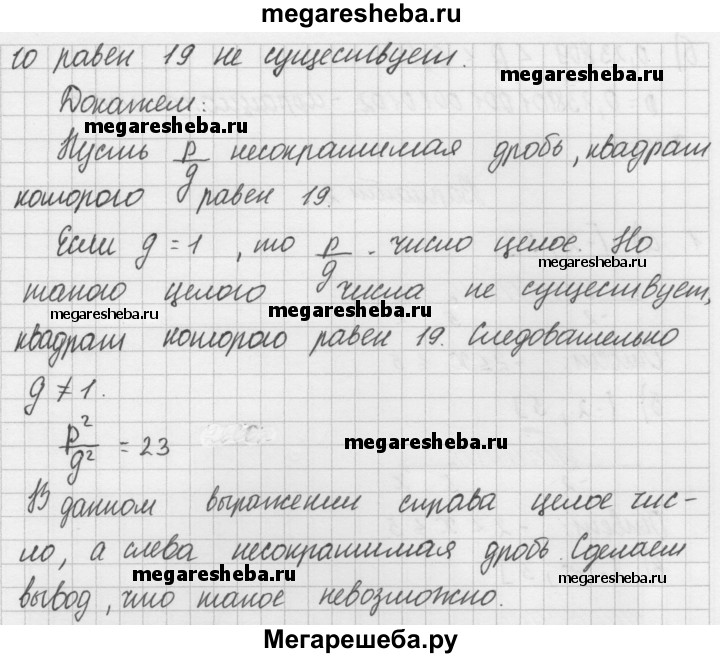 megaresheba.ru
го равен 19 не существует.
Докажем:
megaresheba.ru
Пусть p/g несократимая дробь, квадрат
megaresheba.ru
которого равен 19.
Если g = 1, то p/g - число целое. Но
megaresheba.ru
такого целого числа не существует,
megaresheba.ru megaresheba.ru
квадрат которого равен 19. Следовательно
g ≠ 1.
p²/g² = 23
megaresheba.ru
В данном выражении справа целое чис-
ло, а слева несократимая дробь. Сделаем
megaresheba.ru megaresheba.ru
вывод, что такое невозможно.
Мегарешеба.ру